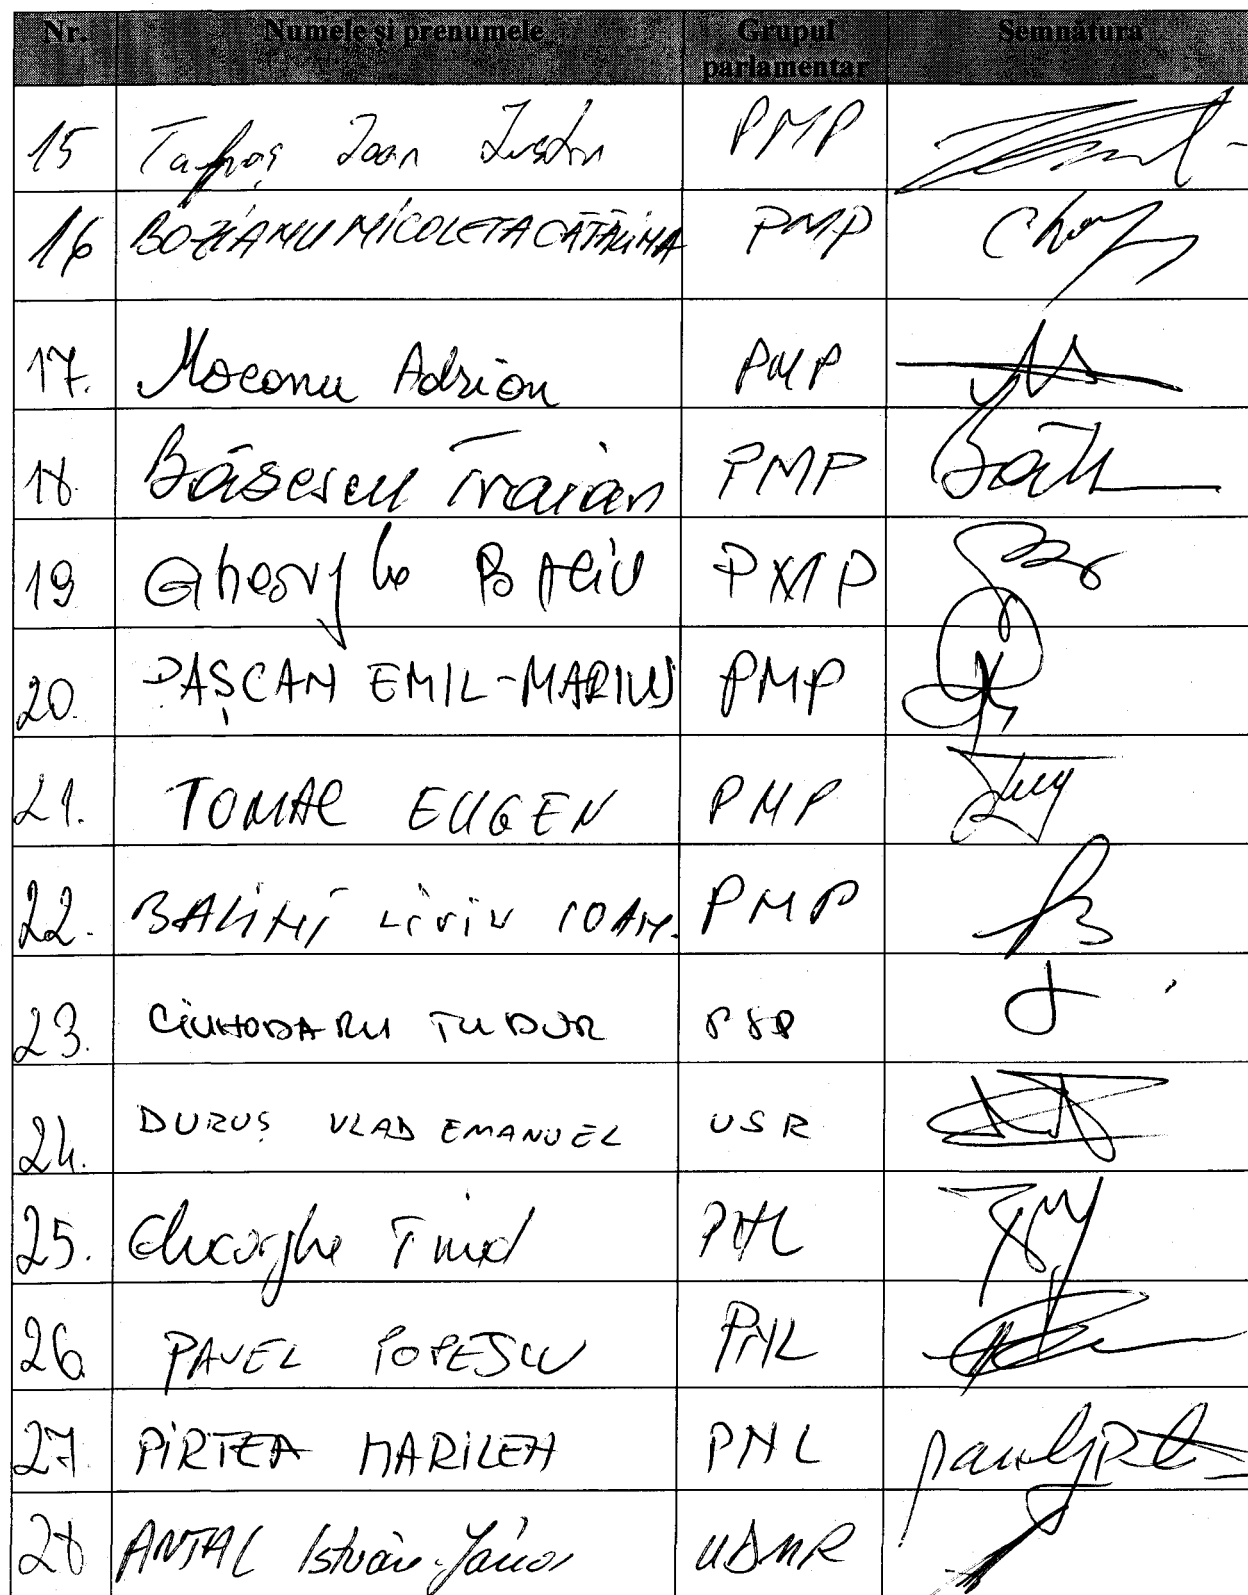 Nr. Numele și prenumele Grupul parlamentar Semnătura
15 Ioan PMP
16 BOZIANU NICOLETA CĂTĂLINA PMP
17. Mocanu Adrian PMP
18. Băsescu Traian PMP
19 Gheorghe Baciu PMP
20. PAȘCAN EMIL-MARIUS PMP
21. TOMAC EUGEN PMP
22. BALINT LIVIU IOAN. PMP
23. CIUHODARU TUDOR PSD
24. DURUȘ VLAD EMANUEL USR
25. Gheorghe Tinel PNL
26. PAVEL POPESCU PNL
27. PIRTEA MARILEN PNL
28 ANTAL István-János UDMR